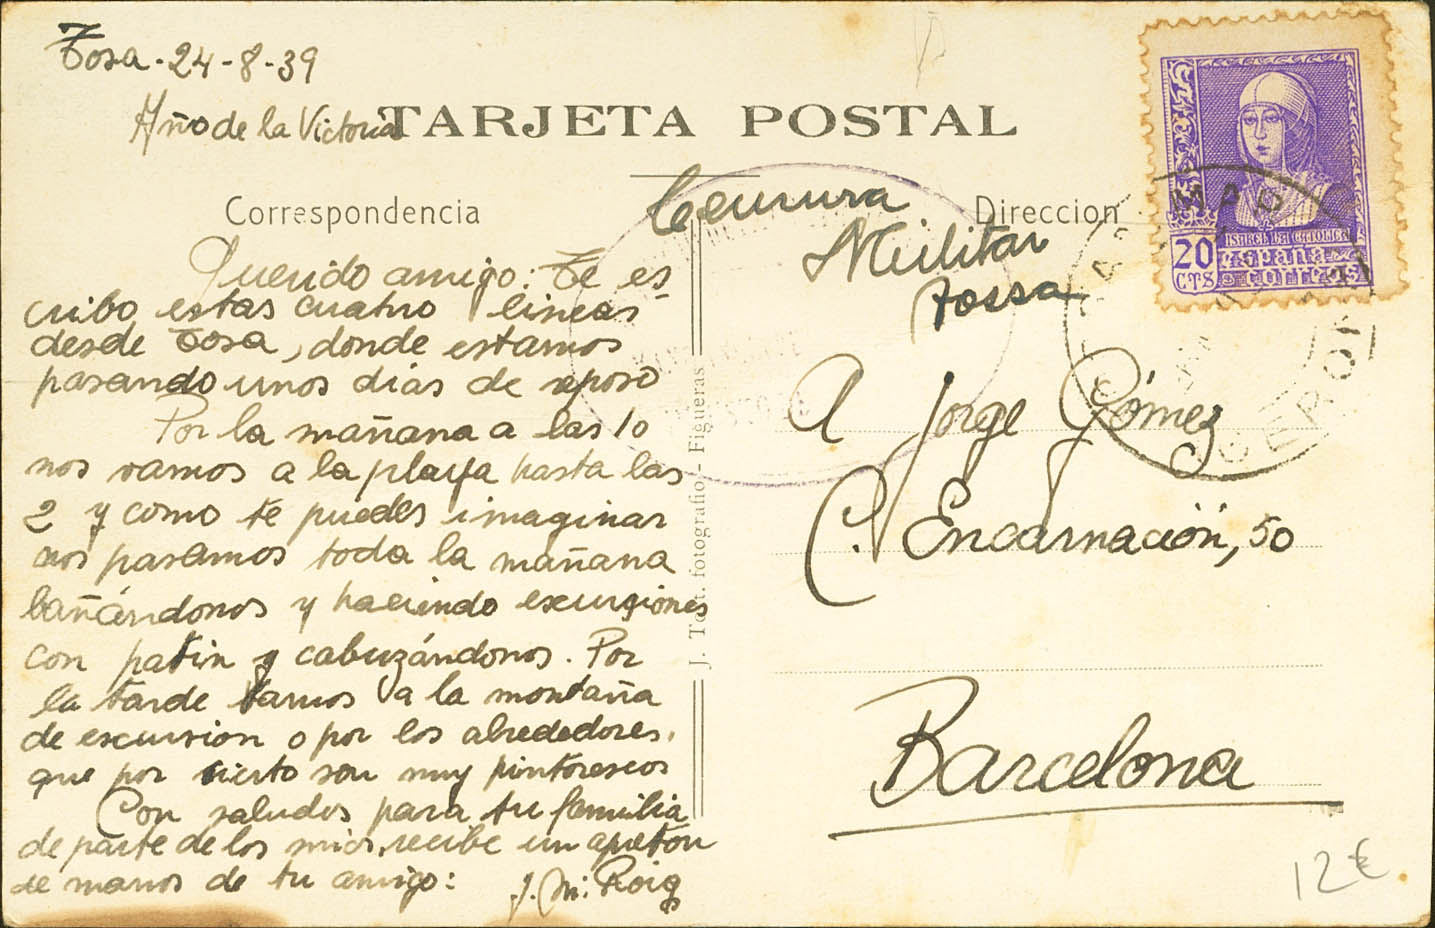 Tosa - 24-8-39
Año de la Victoria
TARJETA POSTAL
Correspondencia
Direccion
Censura
Militar
Tossa
20
CTS
ISABEL LA CATOLICA
ESPAÑA
CORREOS
GERONA
Querido amigo: Te es
cribo estas cuatro lineas
desde Tosa, donde estamos
pasando unos días de reposo
Por la mañana a las 10
nos vamos a la playa hasta las
2 y como te puedes imaginar
nos pasamos toda la mañana
bañándonos y haciendo excursiones
con patin y cabuzándonos. Por
la tarde vamos a la montaña
de excursion o por los alrededores,
que por cierto son muy pintorescos
Con saludos para tu familia
de parte de los mios, recibe un apretón
de manos de tu amigo:
J. Mi. Roig
J. fotografio - Figueras
A Jorge Gómez
C. Encarnación, 50
Barcelona
12€